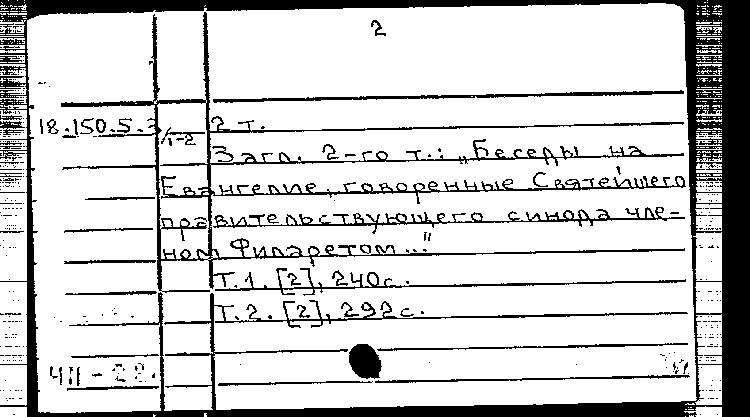 2
18.150.5.3/1-2 2 т.
Загл. 2-го т.: „Беседы на
Евангелие, говоренные Святейшего
правительствующего синода чле-
ном Филаретом..."
Т.1. [2], 240с.
Т.2. [2], 292с.